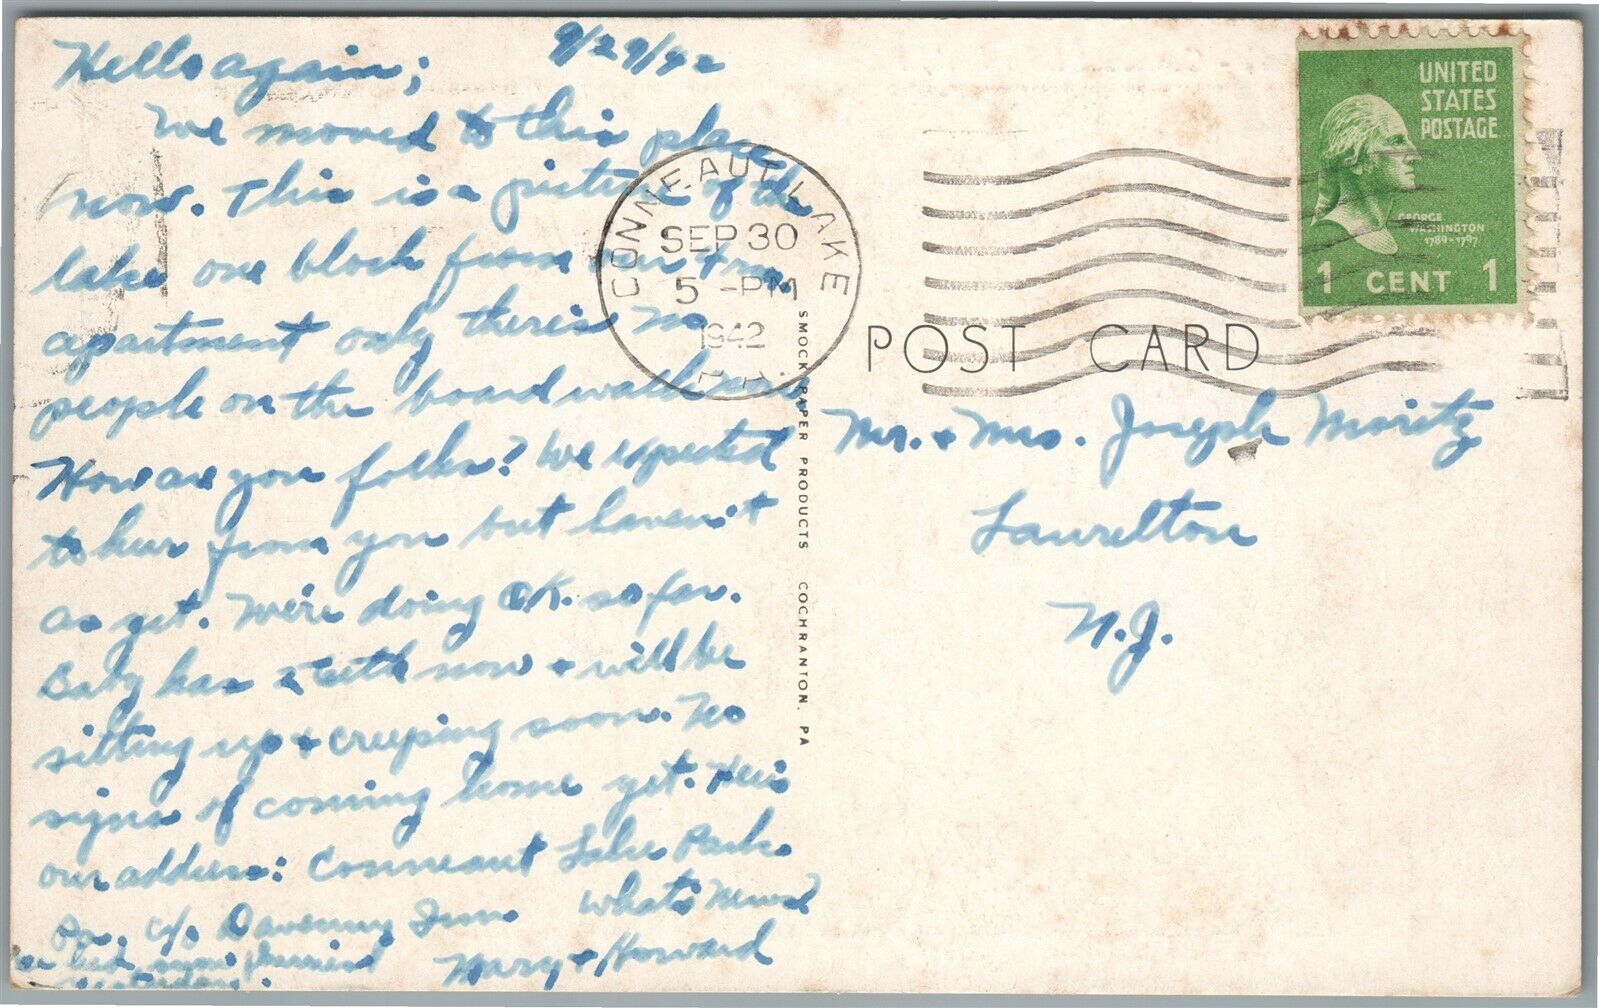 Hello again; 9/29/42
We moved to this place
now. This is a picture of the
lake one block from our
apartment only there's no
people on the boardwalk now
How are you folks? We expected
to hear from you but haven't
as yet. We're doing OK. so far.
Baby has 2 teeth now + will be
sitting up + creeping soon. No
signs of coming home yet. Here's
our address: Conneaut Lake Park.
Pa. c/o Davenny Inn. What's News?
Mary + Howard
yesterday.
CONNEAUT LAKE
SEP 30
5 - PM
1942
PA.
SMOCK PAPER PRODUCTS COCHRANTON, PA
UNITED
STATES
POSTAGE
GEORGE
WASHINGTON
1789-1797
1 CENT 1
POST CARD
Mr. + Mrs. Joseph Moritz
Laurelton
N.J.